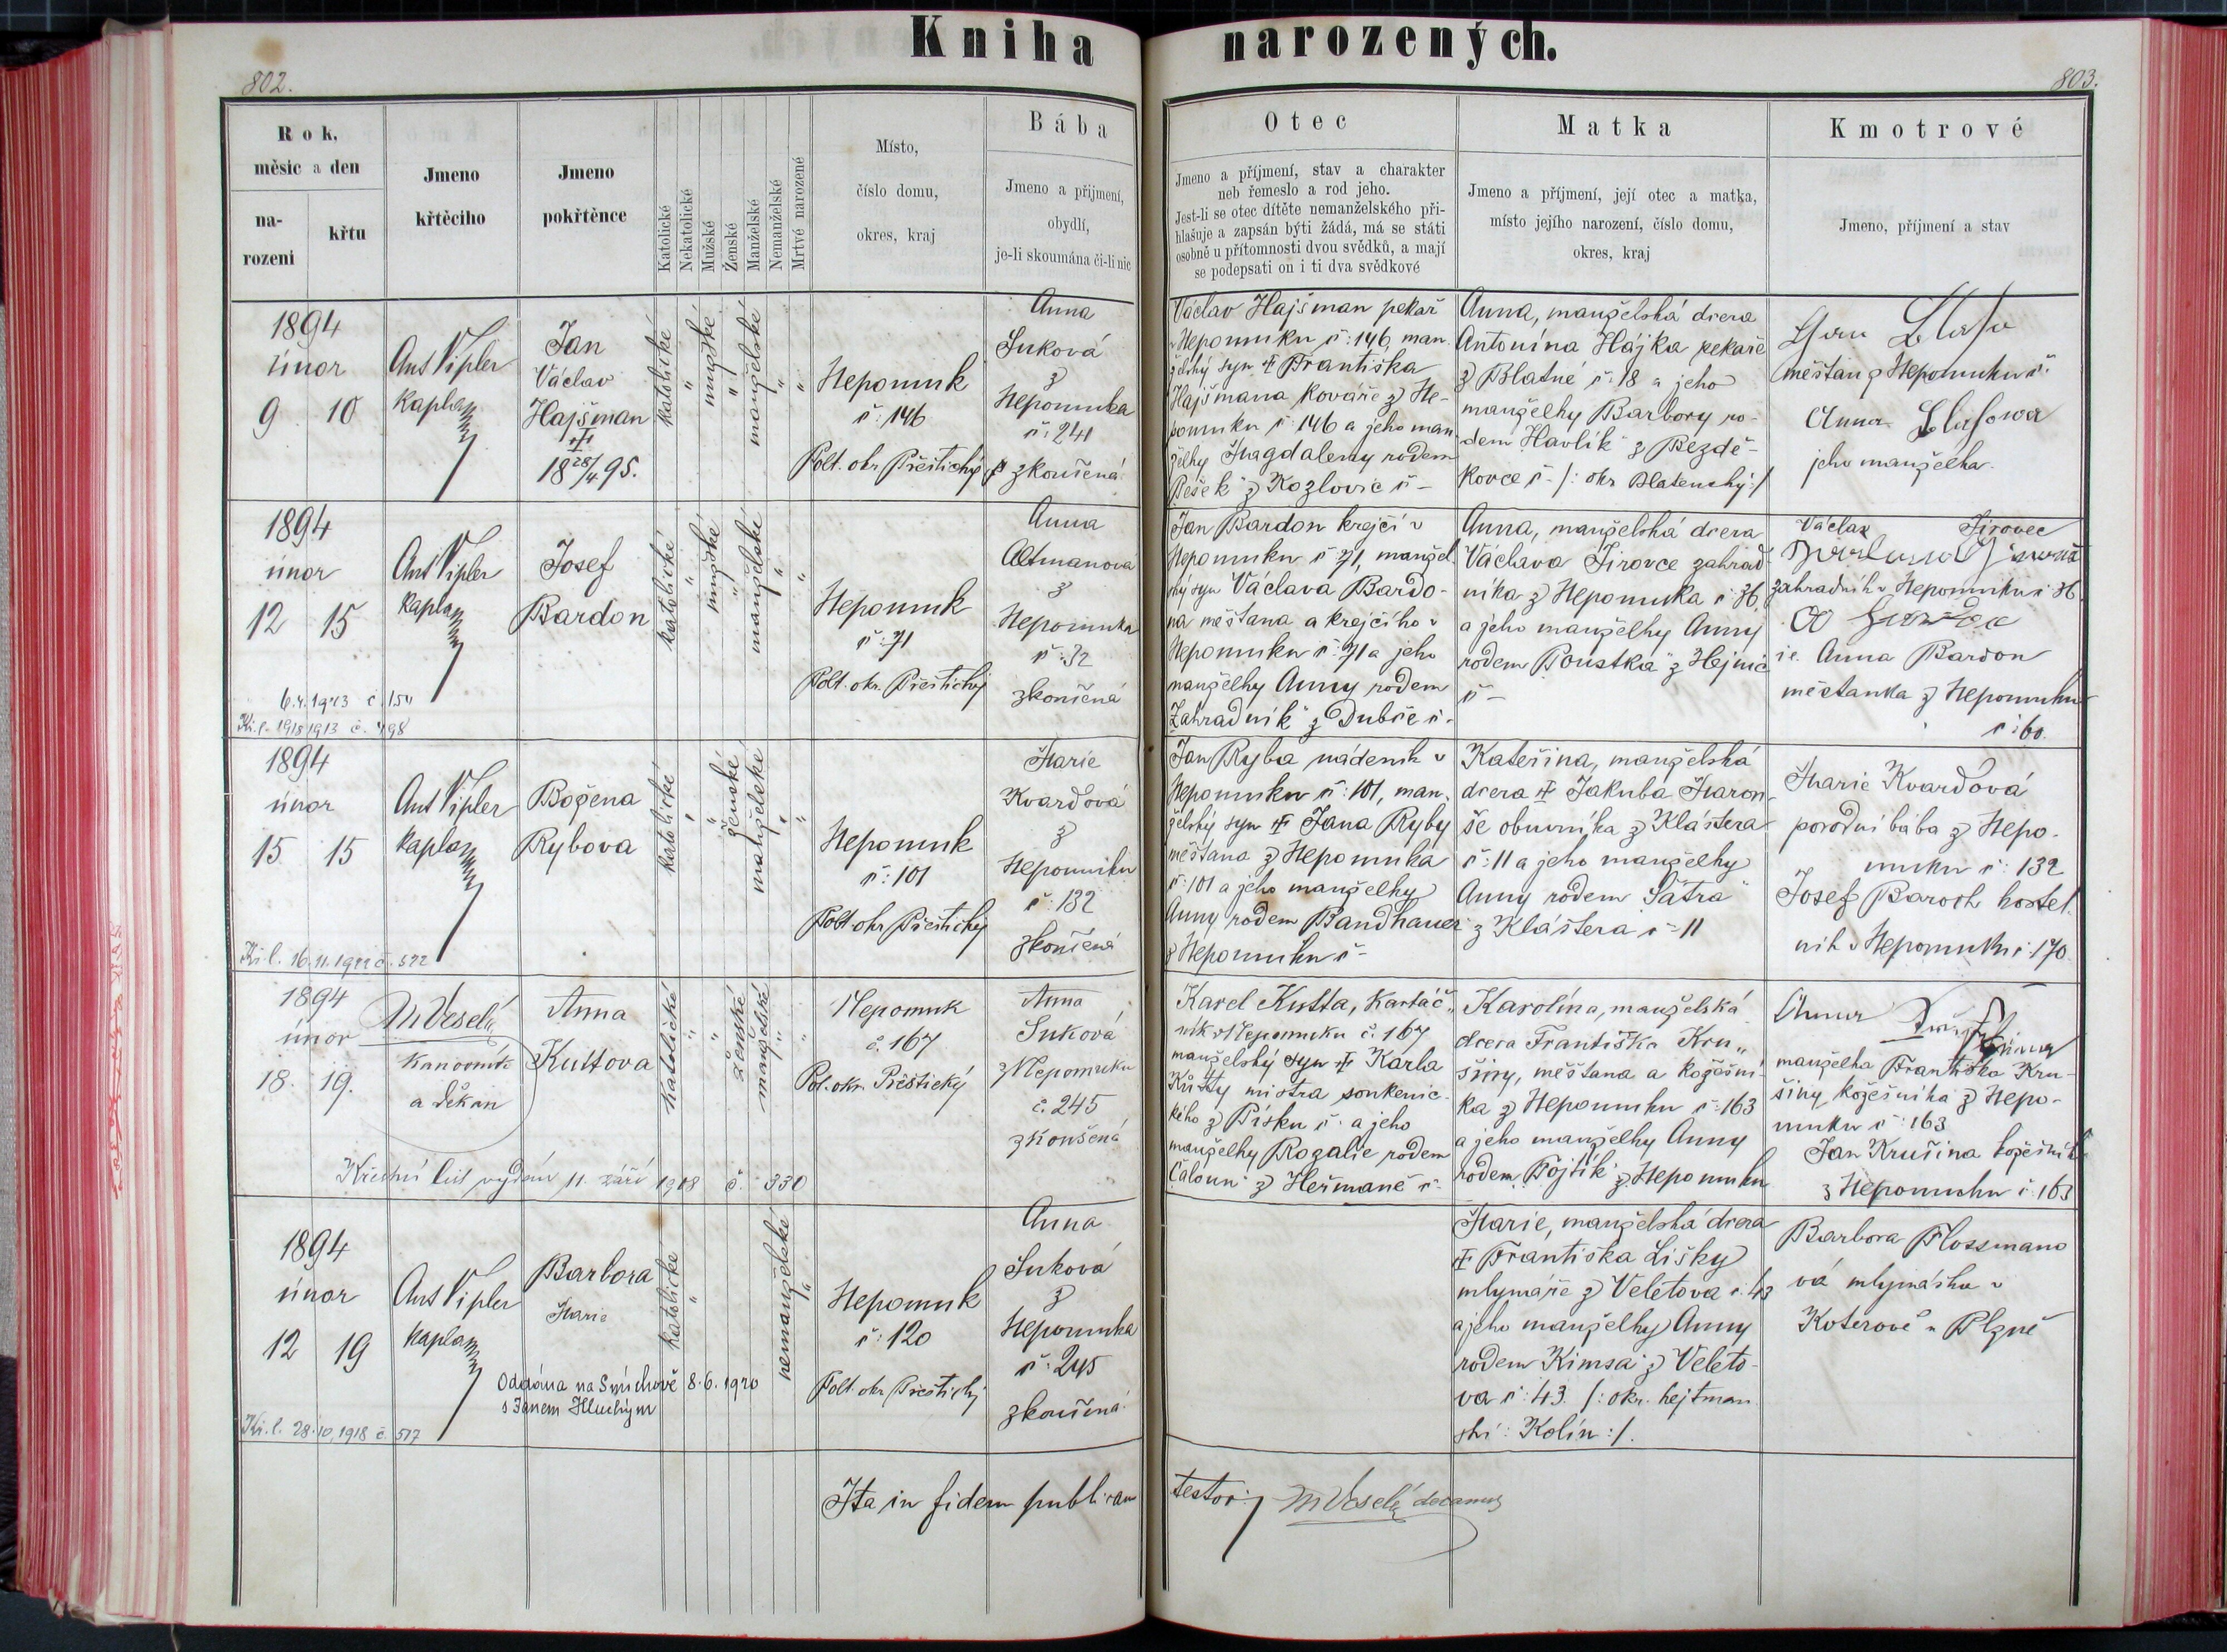 Kniha narozených.
802.
803.
Rok, měsíc a den
narození
křtu
Jmeno křtěcího
Jmeno pokřtěnce
Katolické
Nekatolické
Mužské
Ženské
Manželské
Nemanželské
Mrtvé narozené
Místo,
číslo domu,
okres, kraj
Bába
Jmeno a přijmení,
obydlí,
je-li skoumána či-li nic
Otec
Jmeno a příjmení, stav a charakter
neb řemeslo a rod jeho.
Jest-li se otec dítěte nemanželského při-
hlašuje a zapsán býti žádá, má se státi
osobně u přítomnosti dvou svědků, a mají
se podepsati on i ti dva svědkové
Matka
Jmeno a příjmení, její otec a matka,
místo jejího narození, číslo domu,
okres, kraj
Kmotrové
Jmeno, příjmení a stav
1894
únor
9 10
Ant Vipler
kaplan
Jan
Václav
Hajšman
18 28/4 95.
katolické
"
mužské
"
manželské
"
"
Nepomuk
č: 146
Polt. okr. Přeštický
Anna
Suková
z
Nepomuka
č: 241
zkoušená
Václav Hajšman pekař
v Nepomuku č: 146, man
želský syn Františka
Hajšmana kováře z Ne-
pomuku č: 146 a jeho man
želky Magdaleny rodem
Pešek z Kozlovic č -
Anna, manželská dcera
Antonína Hájka pekaře
z Blatné č: 18 a jeho
manželky Barbory ro-
dem "Havlík" z Bezdě-
kovce č - /: okr Blatenský :/
měštan z Nepomuku č:
Anna
jeho manželka.
1894
únor
12 15
Ant Vipler
kaplan
Josef
Bardon
katolické
"
mužské
"
manželské
"
"
Nepomuk
č: 71
Polt. okr. Přeštický
Anna
Altmanová
z
Nepomuka
č: 32
zkoušená
Jan Bardon krejčí v
Nepomuku č: 71, manžel
ský syn Václava Bardo-
na měštana a krejčího v
Nepomuku č: 71 a jeho
manželky Anny rodem
"Zahradník" z Dubče č -
Anna, manželská dcera
Václava Jirovce zahrad
níka z Nepomuka č: 36,
a jeho manželky Anny
rodem "Poustka" z Hejnic
č -
Václav Jirovec
zahradník v Nepomuku č 36
Anna Bardon
měštanka z Nepomuku
č: 60.
Kř. l.
1894
únor
15 15
Ant Vipler
kaplan
Božena
Rybova
katolické
"
"
ženské
manželské
"
"
Nepomuk
č: 101
Polt. okr Přeštický
Marie
Kvardová
z
Nepomuku
č: 132
zkoušená
Jan Ryba nádeník v
Nepomuku č: 101, man-
želský syn Jana Ryby
měštana z Nepomuka
č: 101 a jeho manželky
Anny rodem Bandhauer
z Nepomuku č -
Kateřina, manželská
dcera Jakuba Maron-
še obuvníka z Kláštera
č: 11 a jeho manželky
Anny rodem "Šátra"
z Kláštera č - 11
Marie Kvardová
porodní bába z Nepo-
muku č: 132
Josef Baroch kostel
ník v Nepomuku č: 170
Kř. l. 16. 11. 1922 č. 522
1894
únor
18. 19.
M Veselý
kanovník
a děkan
Anna
Kuttova
katolické
"
"
ženské
manželské
"
"
Nepomuk
č. 167
Pol. okr. Přeštický
Anna
Suková
z Nepomuku
č. 245
zkoušená
Karel Kutta, kartáč-
ník v Nepomuku č. 167
manželský syn Karla
Kutty mistra soukenic-
kého z Písku č: a jeho
manželky Rozalie rodem
"Čaloun" z Heřmaně č -
Karolina, manželská
dcera Františka Kru-
šiny, měštana a kožešní-
ka z Nepomuku č: 163
a jeho manželky Anny
rodem "Fojtík" z Nepomuku
Anna
manželka Františka Kru-
šiny kožešníka z Nepo-
muku č: 163
Jan Krušina kožešník
z Nepomuku č: 163
Křestní list vydán 11. září 1918 č. 330
1894
únor
12 19
Ant Vipler
kaplan
Barbora
Marie
katolické
"
nemanželské
"
Nepomuk
č: 120
Polt. okr. Přeštický
Anna
Suková
z
Nepomuka
č: 245
zkoušená
Marie, manželská dcera
Františka Lišky
mlynáře z Veletova č. 43
a jeho manželky Anny
rodem Kimsa z Veleto-
va č: 43. /: okr. hejtman
ství: Kolín :/.
Barbora Flossmano
vá mlynářka v
Koterově u Plzně
Oddána na Smíchově 8. 6. 1920
s Janem Hluchým
Kř. l. 28. 10. 1918 č. 517
Ita in fidem publicam testor: M Veselý decanus